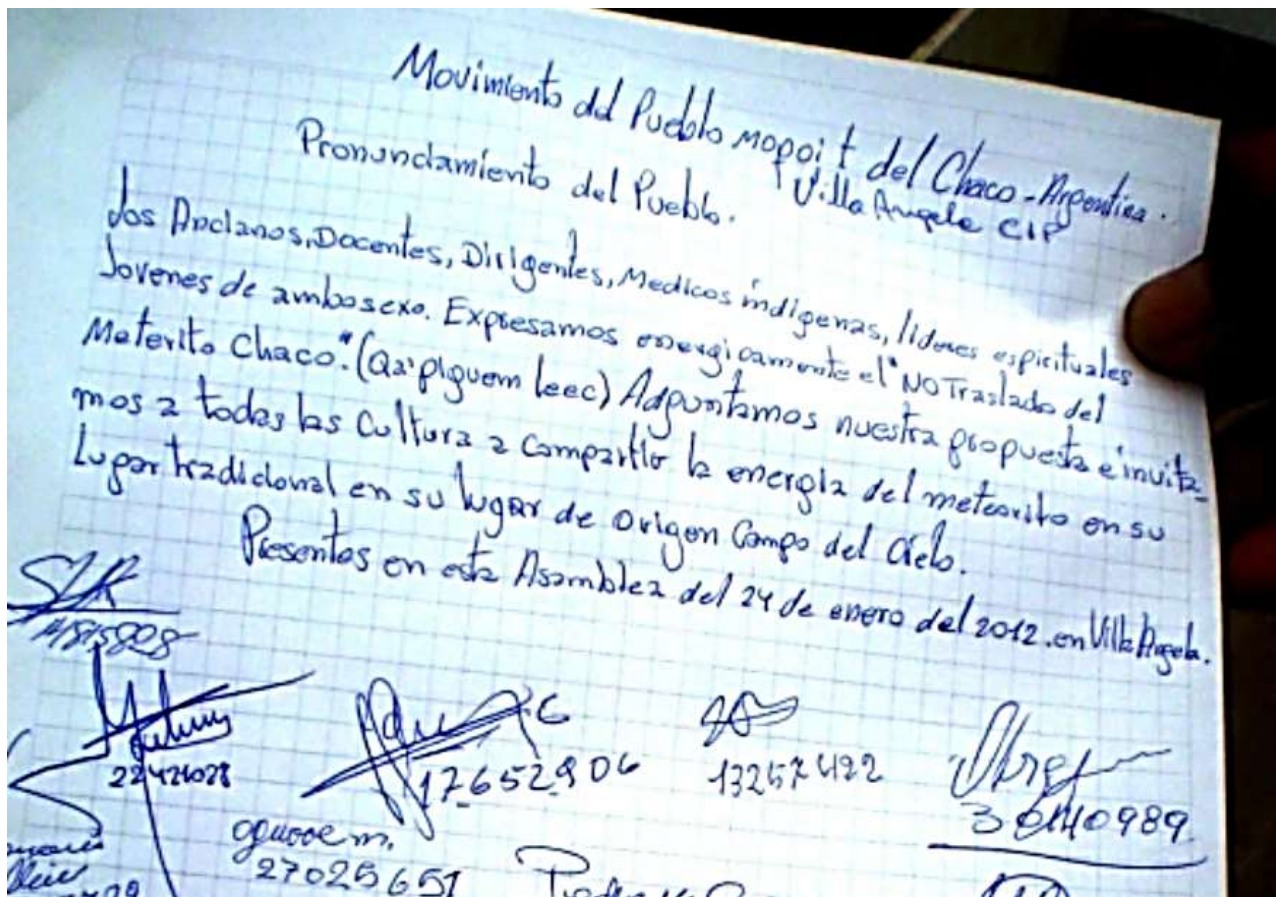 Movimiento del Pueblo moqoit del Chaco - Argentina.
Villa Angela CIP
Pronunciamiento del Pueblo.
Los Ancianos, Docentes, Dirigentes, Medicos indigenas, lideres espirituales
Jovenes de ambosexo. Expresamos energicamente el "NO Traslado del
Meterito Chaco". (Qa'piguem leec) Adjuntamos nuestra propuesta e invita-
mos a todas las Cultura a compartir la energia del meteorito en su
Lugar tradicional en su lugar de Origen Campo del Cielo.
Presentes en esta Asamblea del 24 de enero del 2012. en Villa Angela.
22421028
17652906
13257422
27025651